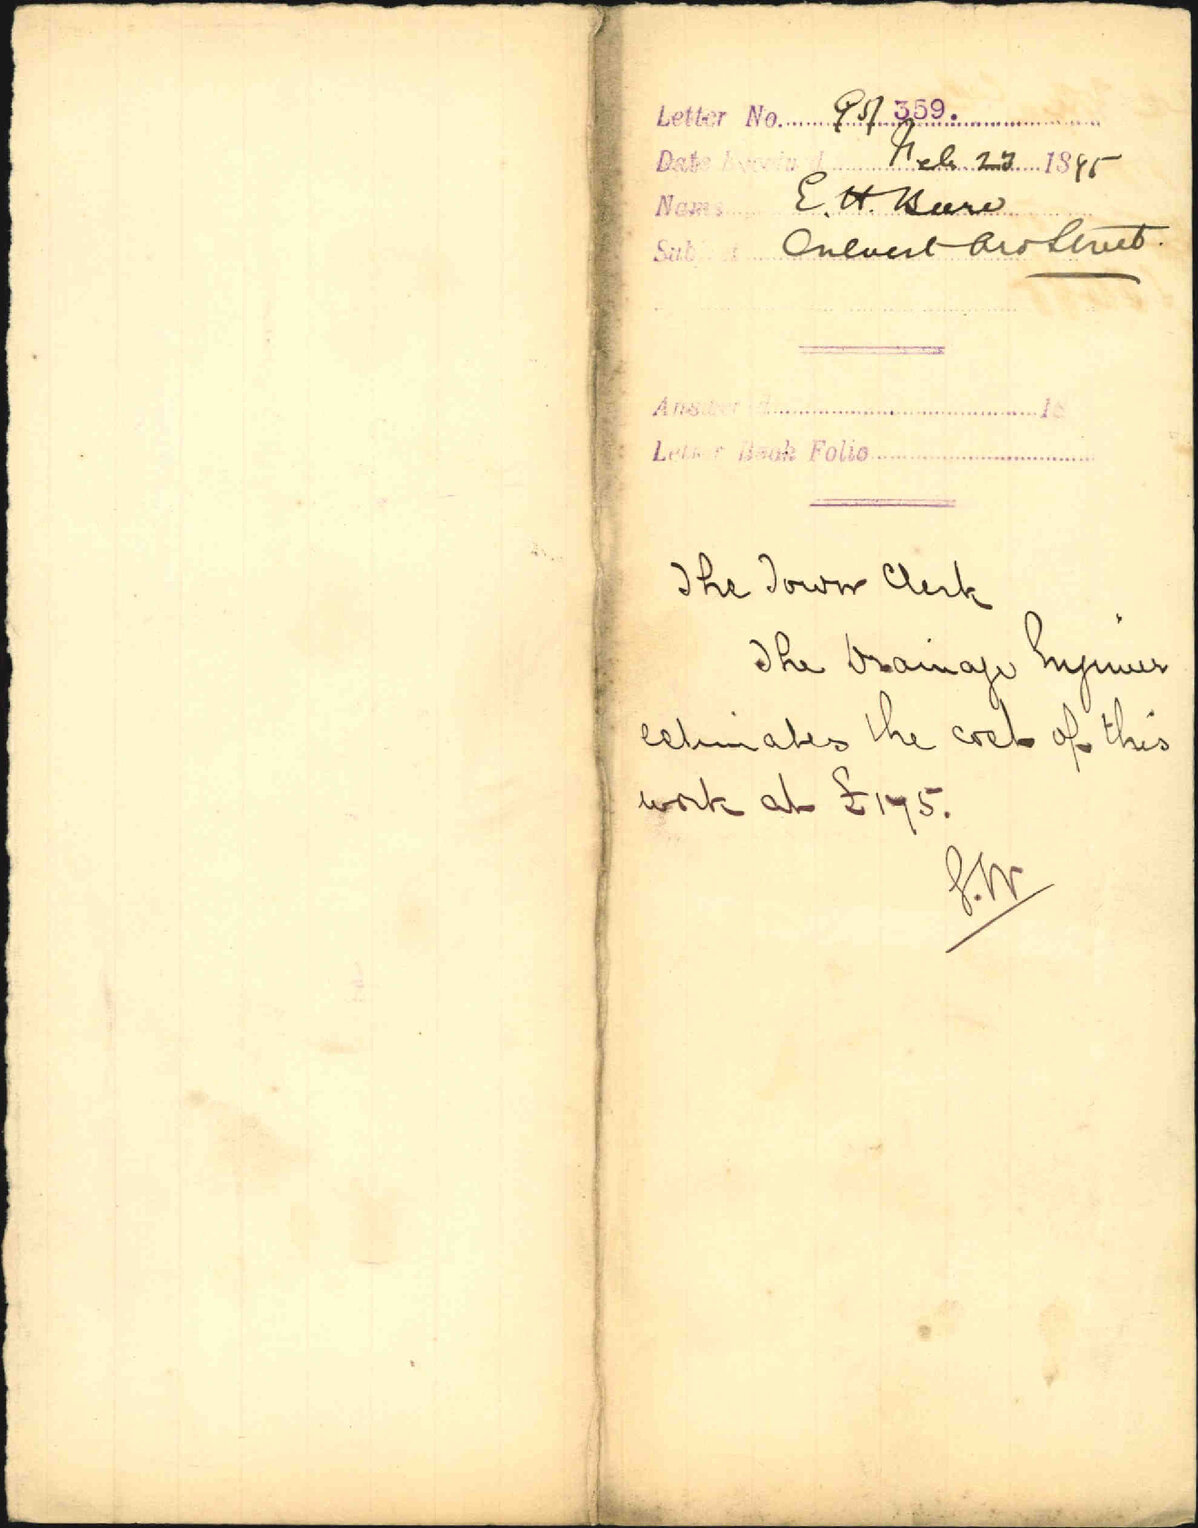 Letter No. 95/359.
Date Received Feb 27 1895
Name E. H. Beere
Subject Culvert Aro Street.
Answered 18
Letter Book Folio
The Town Clerk
The Drainage Engineer
estimates the cost of this
work at £175.